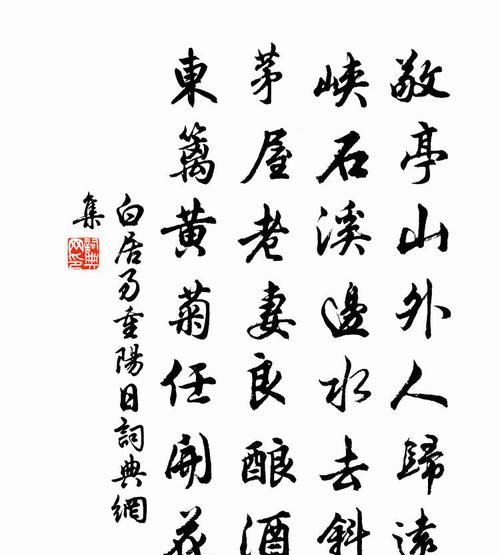 敬亭山外人歸遠
峽石溪邊水去斜
茅屋老妻良釀酒
東籬黃菊任開花
白居易重陽日詞典網
集